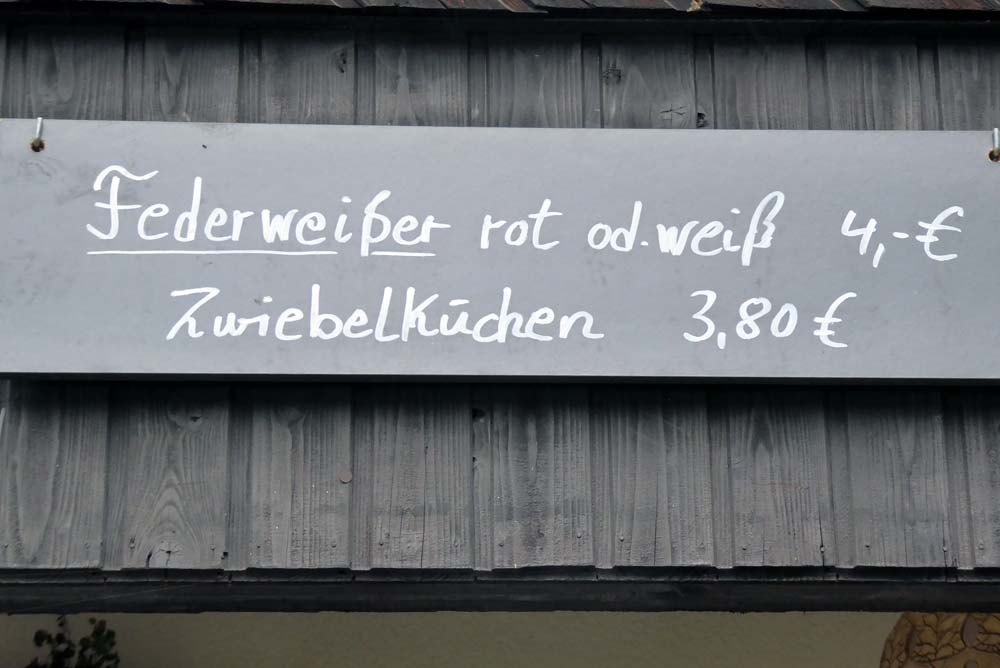 Federweißer rot od. weiß 4,-€
Zwiebelküchen 3,80 €